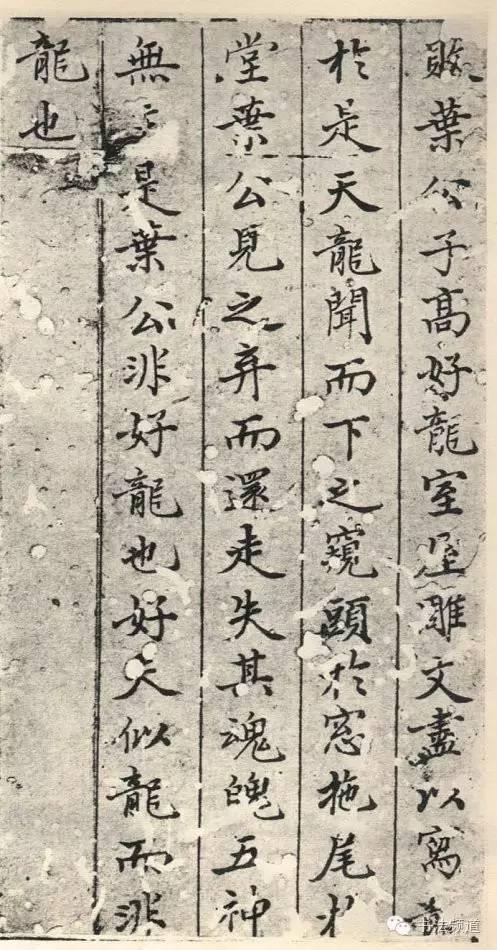 葉公子高好龍室屋雕文盡以寫
於是天龍聞而下之窺頭於窓拖尾
堂葉公見之弃而還走失其魂魄五神
無是葉公非好龍也好夫似龍而非
龍也
书法频道